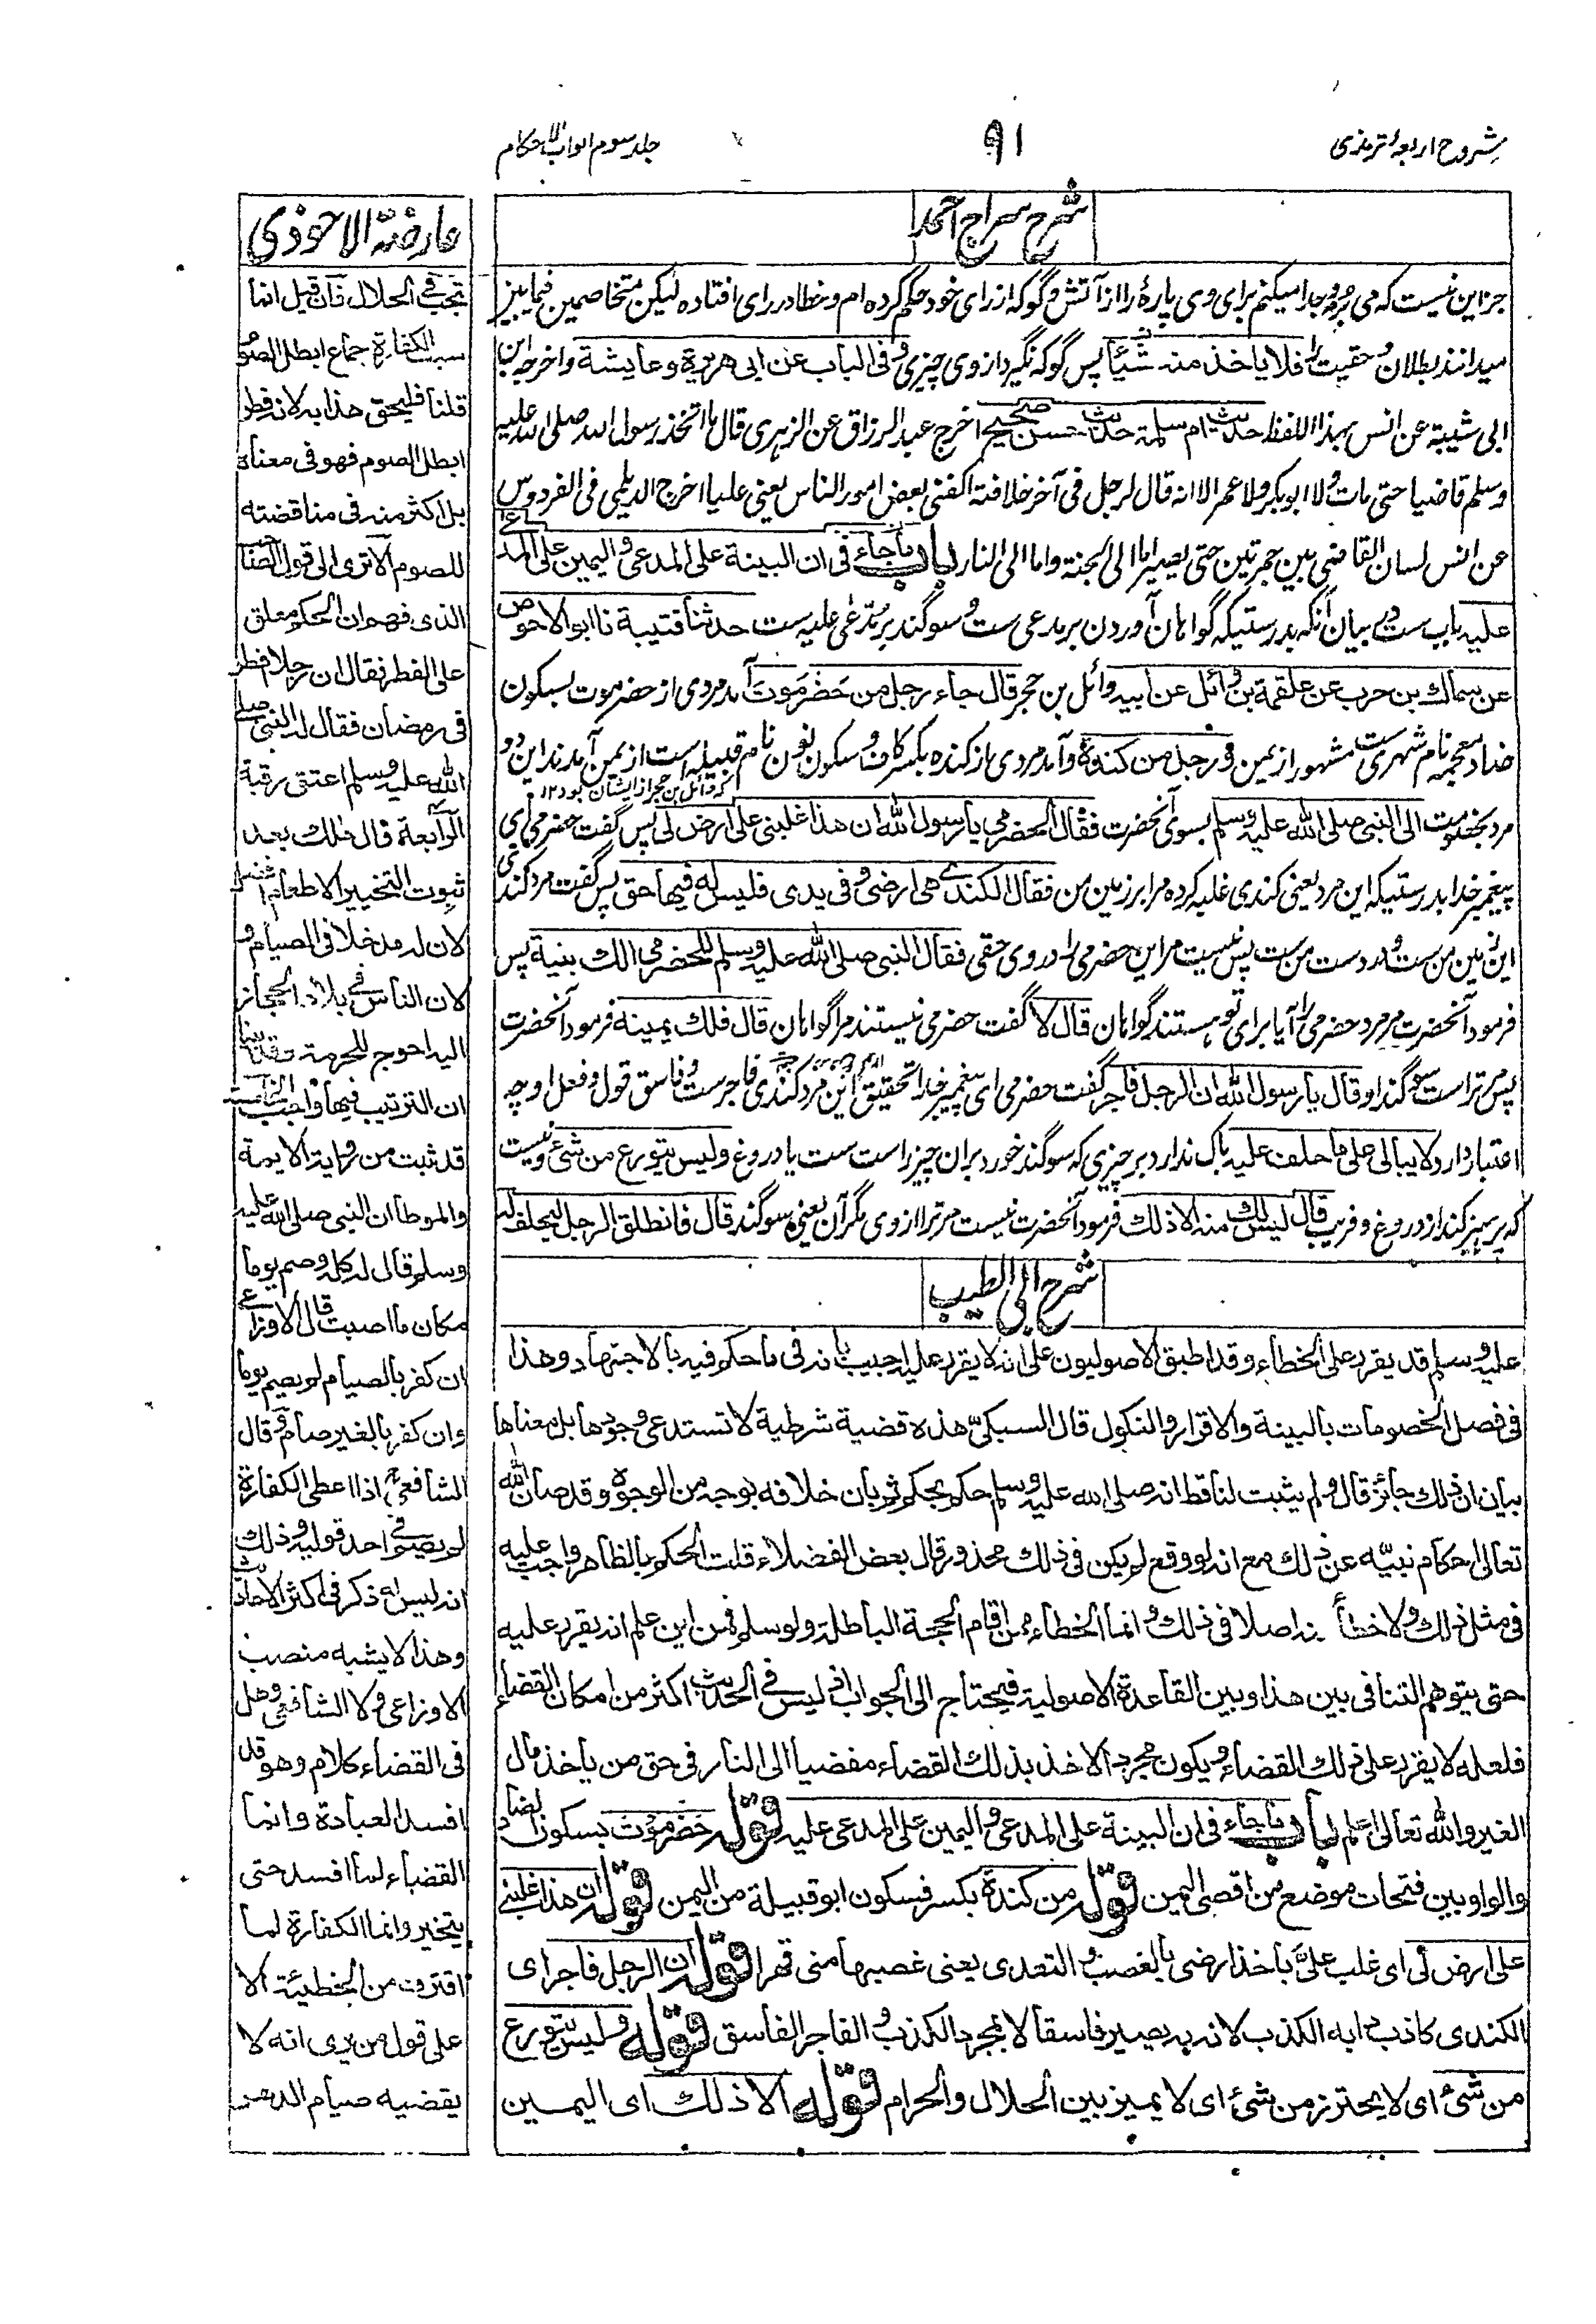 شروح اربعۂ ترمذی
۹۱
جلد سوم ابواب الاحکام
شرح سراج احمد
جز این نیست که می برم و جدا میکنم برای وی پارۂ را از آتش و گو که از رای خود حکم کرده ام و خطا در رای افتاده لیکن متخاصمین فیما بین
میدانند بطلان و حقیت را فلا یاخذ منه شیئا پس گو که نگیرد از وی چیزی و فی الباب عن ابی هریرة و عایشة و اخرجه ابن
ابی شیبة عن انس بهذا اللفظ حدیث ام سلمة حدیث حسن صحیح اخرج عبد الرزاق عن الزهری قال ما اتخذ رسول الله صلی الله علیه
وسلم قاضیا حتی مات ولا ابوبکر ولا عمر الا انه قال لرجل فی آخر خلافته اکفنی بعض امور الناس یعنی علیا اخرج الدیلمی فی الفردوس
عن انس لسان القاضی بین جمرتین حتی یصیر اما الی الجنة واما الی النار باب ما جاء فی ان البینة علی المدعی والیمین علی المدعی
علیه باب ست در بیان آنکه بدرستیکه گواهان آوردن بر مدعی ست و سوگند بر مدّعٰی علیه ست حدثنا قتیبة نا ابو الاحوص
عن سماك بن حرب عن علقمة بن وائل عن ابیه وائل بن حجر قال جاء رجل من حَضْرَمَوتَ آمد مردی از حضرموت بسکون
ضاد معجمه نام شهری ست مشهور از یمن و رجل من کندة و آمد مردی از کنده بکسر کاف و سکون نون نام قبیله است از یمن آمدند این دو
که وائل بن حجر از ایشان بود ۱۲
مرد بخصومت الی النبی صلی الله علیه وسلم بسوی آنحضرت فقال الحضرمی یا رسول الله ان هذا غلبنی علی ارض لی پس گفت حضرمی ای
پیغمبر خدا بدرستیکه این مرد یعنی کندی غلبه کرده مرا بر زمین من فقال الکندی هی ارضی و فی یدی فلیس له فیها حق پس گفت مرد کندی
این زمین من ست و در دست من ست پس نیست مر این حضرمی را در وی حقی فقال النبی صلی الله علیه وسلم للحضرمی الك بینة پس
فرمود آنحضرت مر مرد حضرمی را آیا برای تو هستند گواهان قال لا گفت حضرمی نیستند مرا گواهان قال فلك یمینه فرمود آنحضرت
پس مر تراست سوگند او قال یا رسول الله ان الرجل فاجر گفت حضرمی ای پیغمبر خدا تحقیق این مرد کندی فاجر ست و فاسق قول و فعل او چه
اعتبار دارد لا یبالی علی ما حلف علیه باک ندارد بر چیزی که سوگند خورد بران چیز راست ست یا دروغ ولیس یتورع من شئ و نیست
که پرهیز کند از دروغ و فریب قال لیس لك منه الا ذلك فرمود آنحضرت نیست مر ترا از وی مگر آن یعنی سوگند قال فانطلق الرجل لیحلف له
شرح ابی الطیب
علیه وسلم قد یقرر علی الخطاء وقد اطبق الاصولیون علی انه لا یقرر علیه اجیب بانه فی ما حکم فیه بالاجتهاد وهذا
فی فصل الخصومات بالبینة والاقرار والنکول قال السبکی هذه قضیة شرطیة لا تستدعی وجودها بل معناها
بیان ان ذلك جائز قال ولم یثبت لنا قط انه صلی الله علیه وسلم حکم بحکم ثم بان خلافه بوجه من الوجوه وقد صان الله
تعالی احکام نبیّه عن ذلك مع انه لو وقع لم یکن فی ذلك محذور قال بعض الفضلاء قلت الحکم بالظاهر واجب علیه
فی مثل ذلك ولا خطأ منه اصلا فی ذلك وانما الخطاء ممن اقام الحجة الباطلة ولو سلم فمن این علم انه یقرر علیه
حتی یتوهم التنافی بین هذا وبین القاعدة الاصولیة فیحتاج الی الجواب اذ لیس فی الحدیث اکثر من امکان القضاء
فلعله لا یقرر علی ذلك القضاء ویکون مجرد الاخذ بذلك القضاء مفضیا الی النار فی حق من یأخذ مال
الغیر والله تعالی اعلم باب ما جاء فی ان البینة علی المدعی والیمین علی المدعی علیه قوله حضرموت بسکون الضاد
والواو بین فتحات موضع من اقصی الیمن قوله من کندة بکسر فسکون ابو قبیلة من الیمن قوله ان هذا غلبنی
علی ارض لی ای غلب علیَّ باخذ ارضی بالغصب والتعدی یعنی غصبها منی قهرا قوله ان الرجل فاجر ای
الکندی کاذب دابه الکذب لانه به یصیر فاسقا لا بمجرد الکذب والفاجر الفاسق قوله ولیس یتورع
من شئ ای لا یحترز من شئ ای لا یمیز بین الحلال والحرام قوله الا ذلك ای الیمین
عارضة الاحوذی
تجب فی الحلال فان قیل انما
سبب الکفارة جماع ابطل الصوم
قلنا فلیحق هذا به لانه فطر
ابطل الصوم فهو فی معناه
بل اکثر منه فی مناقضته
للصوم الا تری الی قول الصحابی
الذی فهم ان الحکم معلق
علی الفطر فقال ان رجلا افطر
فی رمضان فقال له النبی صلی
الله علیه وسلم اعتق رقبة
الرابعة قال مالك بعد
ثبوت التخییر الاطعام افضل
لان له مدخلا فی الصیام و
لان الناس فی بلاد الحجاز
الیه احوج للحرمة وقد بینا
ان الترتیب فیها واجب الخامسة
قد ثبت من روایة الایمة
والموطا ان النبی صلی الله علیه
وسلم قال له کله وصم یوما
مکان ما اصبت قال الاوزاعی
ان کفر بالصیام لم یصم یوما
وان کفر بالغیر صام وقال
الشافعی اذا اعطی الکفارة
لم یصم فی احد قولیه وذلك
انه لیس له ذکر فی اکثر الاحادیث
وهذا لا یشبه منصب
الاوزاعی ولا الشافعی وهل
فی القضاء کلام وهو قد
افسد العبادة وانما
القضاء لما افسد حتی
یتخیر وانما الکفارة لما
اقترف من الخطیئة الا
علی قول من یری انه لا
یقضیه صیام الدهر